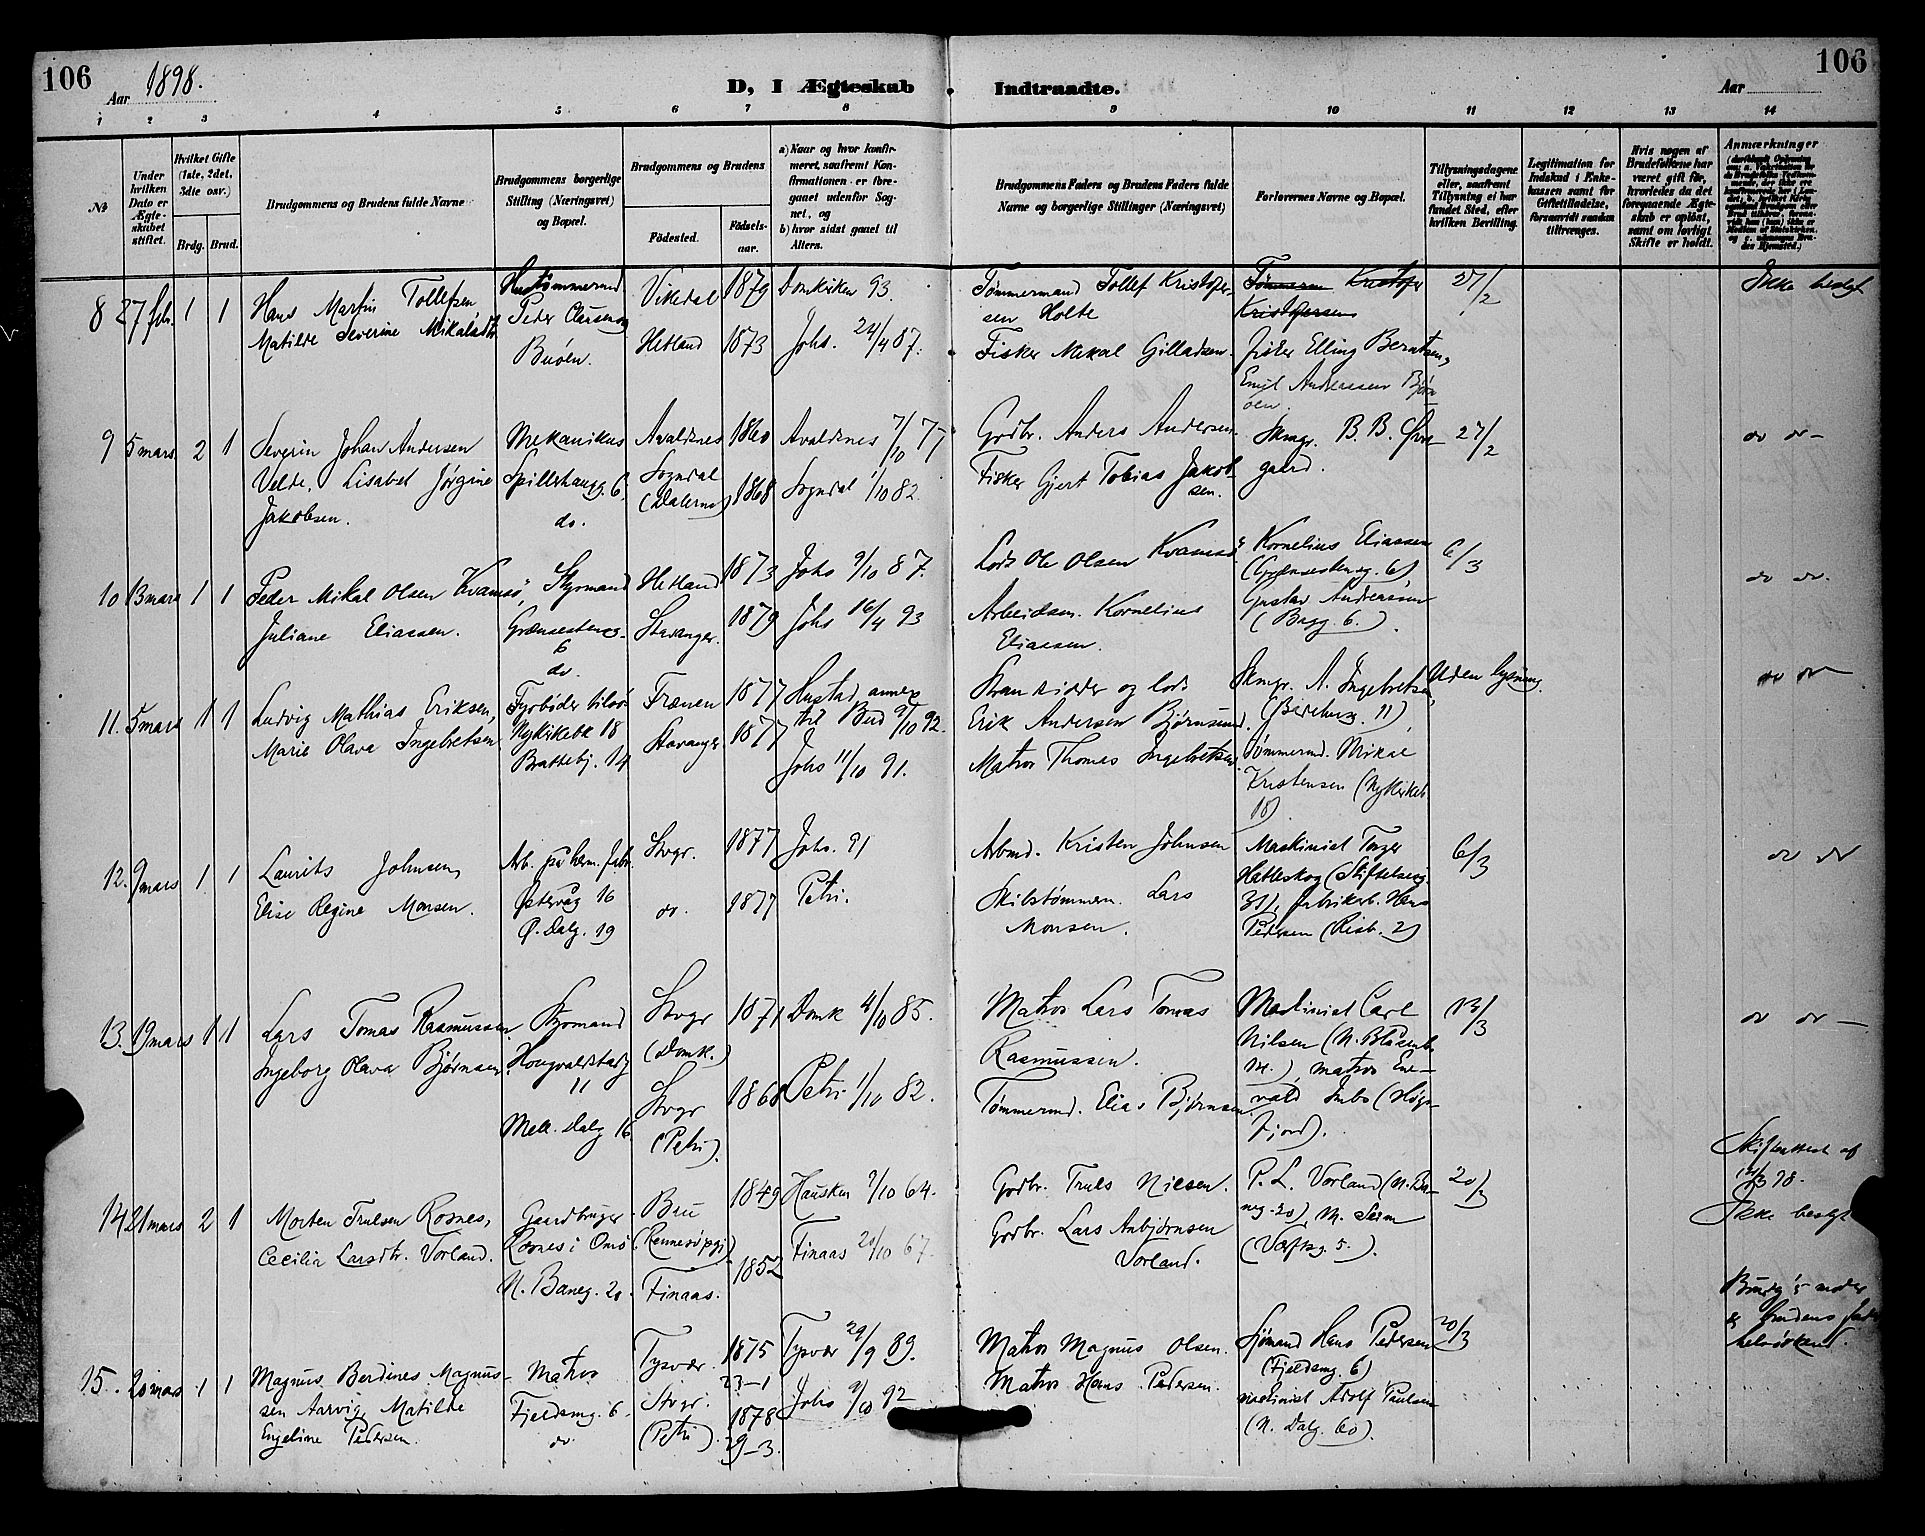 106 Aar 1898. D, I Ægteskab Indtraadte. Aar 106
1 2 3 4 5 6 7 8 9 10 11 12 13 14
№
Under hvilken Dato er Ægteskabet stiftet.
Hvilket Gifte (1ste, 2det, 3die osv.)
Brdg. Brud.
Brudgommens og Brudens fulde Navne
Brudgommens borgerlige Stilling (Næringsvei) og Bopæl.
Brudgommens og Brudens
Fødested. Fødsels-aar.
a) Naar og hvor konfirmeret, saafremt Konfirmationen er foregaaet udenfor Sognet, og
b) hvor sidst gaaet til Alters.
Brudgommens Faders og Brudens Faders fulde Navne og borgerlige Stillinger (Næringsvei)
Forlovernes Navne og Bopæl.
Tillysningsdagene eller, saafremt Tillysning ei har fundet Sted, efter hvilken Bevilling.
Legitimation for Indskud i Enkekassen samt for Giftetilladelse, forsaavidt saadan tiltrænges.
Hvis nogen af Brudefolkene har været gift før, hvorledes da det foregaaende Ægteskab er opløst, samt om lovligt Skifte er holdt.
Anmærkninger
8 27 febr. 1 1
Hans Martin Tollefsen
Matilde Severine Mikalsdtr
Peder Clausens
Buøen.
Vikedal 1879 Domkirken 93.
Hetland 1873 Johs. 24/4 87.
Tømmermand Tollef Kristofersen Holte
Fisker Mekal Gilladsen.
Kristofersen
fisker Elling Berntsen,
Emil Andreasen Bjørnøen.
27/2
Ikke beslgt
9 5 mars. 2 1
Severin Johan Andersen
Velde, Lisabet Jørgine
Jakobsen.
Mekanikus
Spilderhaugg. 6.
do.
Avaldsnes 1860 Avaldsnes 7/10 77
Sogndal (Dalerne) 1868 Sogndal 1/10 82.
Grdbr. Anders Andersen.
Fisker Gjert Tobias Jakobsen.
Skmgr. B. B.
27/2
do do
10 13 mars 1 1
Peder Mikal Olsen Kvamsø,
Juliane Eliassen.
Styrmand
Grænsesteneg.
6
do.
Hetland 1873 Johs 9/10 87.
Stavanger. 1879 Johs 16/4 93
Lods Ole Olsen Kvamsø
Arbeidsm. Kornelius
Eliassen.
Kornelius Eliassen
(Grænsesteneg. 6)
Gustav Andreassen
(Bagg. 6.)
6/3
do do.
11. 5 mars 1 1
Ludvig Mathias Eriksen,
Marie Olava Ingebretsen
Fyrbøder
Nykirkebk 18
Brattebj. 14
Frænen 1877 Hustad annex
til Bud 9/10 92.
Stavanger 1877 Johs 11/10 91.
Strandsidder og lods
Erik Andersen Bjørnsund.
Matros Thomas Ingebretsen
Skmgr. A. Ingebretsen
(Bereberg. 11)
Tømmermd. Mikal
Kristensen (Nykirkeb.
18)
Uden lysning.
do do
12. 9 mars 1 1
Laurits Johnsen,
Elise Regine Monsen.
Arb. på herm. fabr.
Østervåg 16
P. Dalg. 19
Stvgr. 1877 Johs. 91
do. 1877 Petri.
Arbmd. Kristen Johnsen
Skibstømmerm. Lars
Monsen.
Maskinist Torger
Hatleskog (Stiftelsesg.
31), fabrikarb. Hans
Pedersen (Risb. 2)
6/3
do do
13. 19 mars 1 1
Lars Tomas Rasmussen,
Ingeborg Olava Bjørnsen.
Styrmand
Hougvaldstadg
11
Mell. dalg 16
Stvgr (Domk.) 1871 Domk 4/10 85.
Stvgr (Petri). 1868 Petri 1/10 82.
Matros Lars Tomas
Rasmussen.
Tømmermd. Elias Bjørnsen
Maskinist Carl
Nilsen (N. Blåsenb.
14.), matros Enevald Imbs (Høgsfjord).
13/3
do do
14 21 mars 2 1
Morten Trulsen Rosnes,
Cecilia Larsdtr. Vorland.
Gaardbruger
Rosnes i Omø
N. Baneg. 20.
Bru (Rennesø pgj) 1849 Hausken 9/10 64.
Finaas. 1852 Finaas 20/10 67.
Grdbr. Truls Nilsen.
Grdbr. Lars Anbjørnsen
Vorland.
P. L. Vorland (N. Baneg. 20), M. Seim
20/3
Skifteattest af
Ikke beslgt
15. 20 mars 1 1
Magnus Berdines Magnussen Aarvig, Matilde
Engeline Pedersen.
Matros
Fjeldsmg. 6
do.
Tysvær. 1875 23-1 Tysvær 29/9 89.
Stvgr. (Petri). 1878 29-3. Johs 9/10 92
Matros Magnus Olsen.
Matros Hans Pedersen.
Sjømand Hans Pedersen
(Fjeldsmg. 6)
maskinist Adolf Paulsen
(N. Dalg. 60).
20/3
Brudg's moder
er brudens fars
helsøskend.